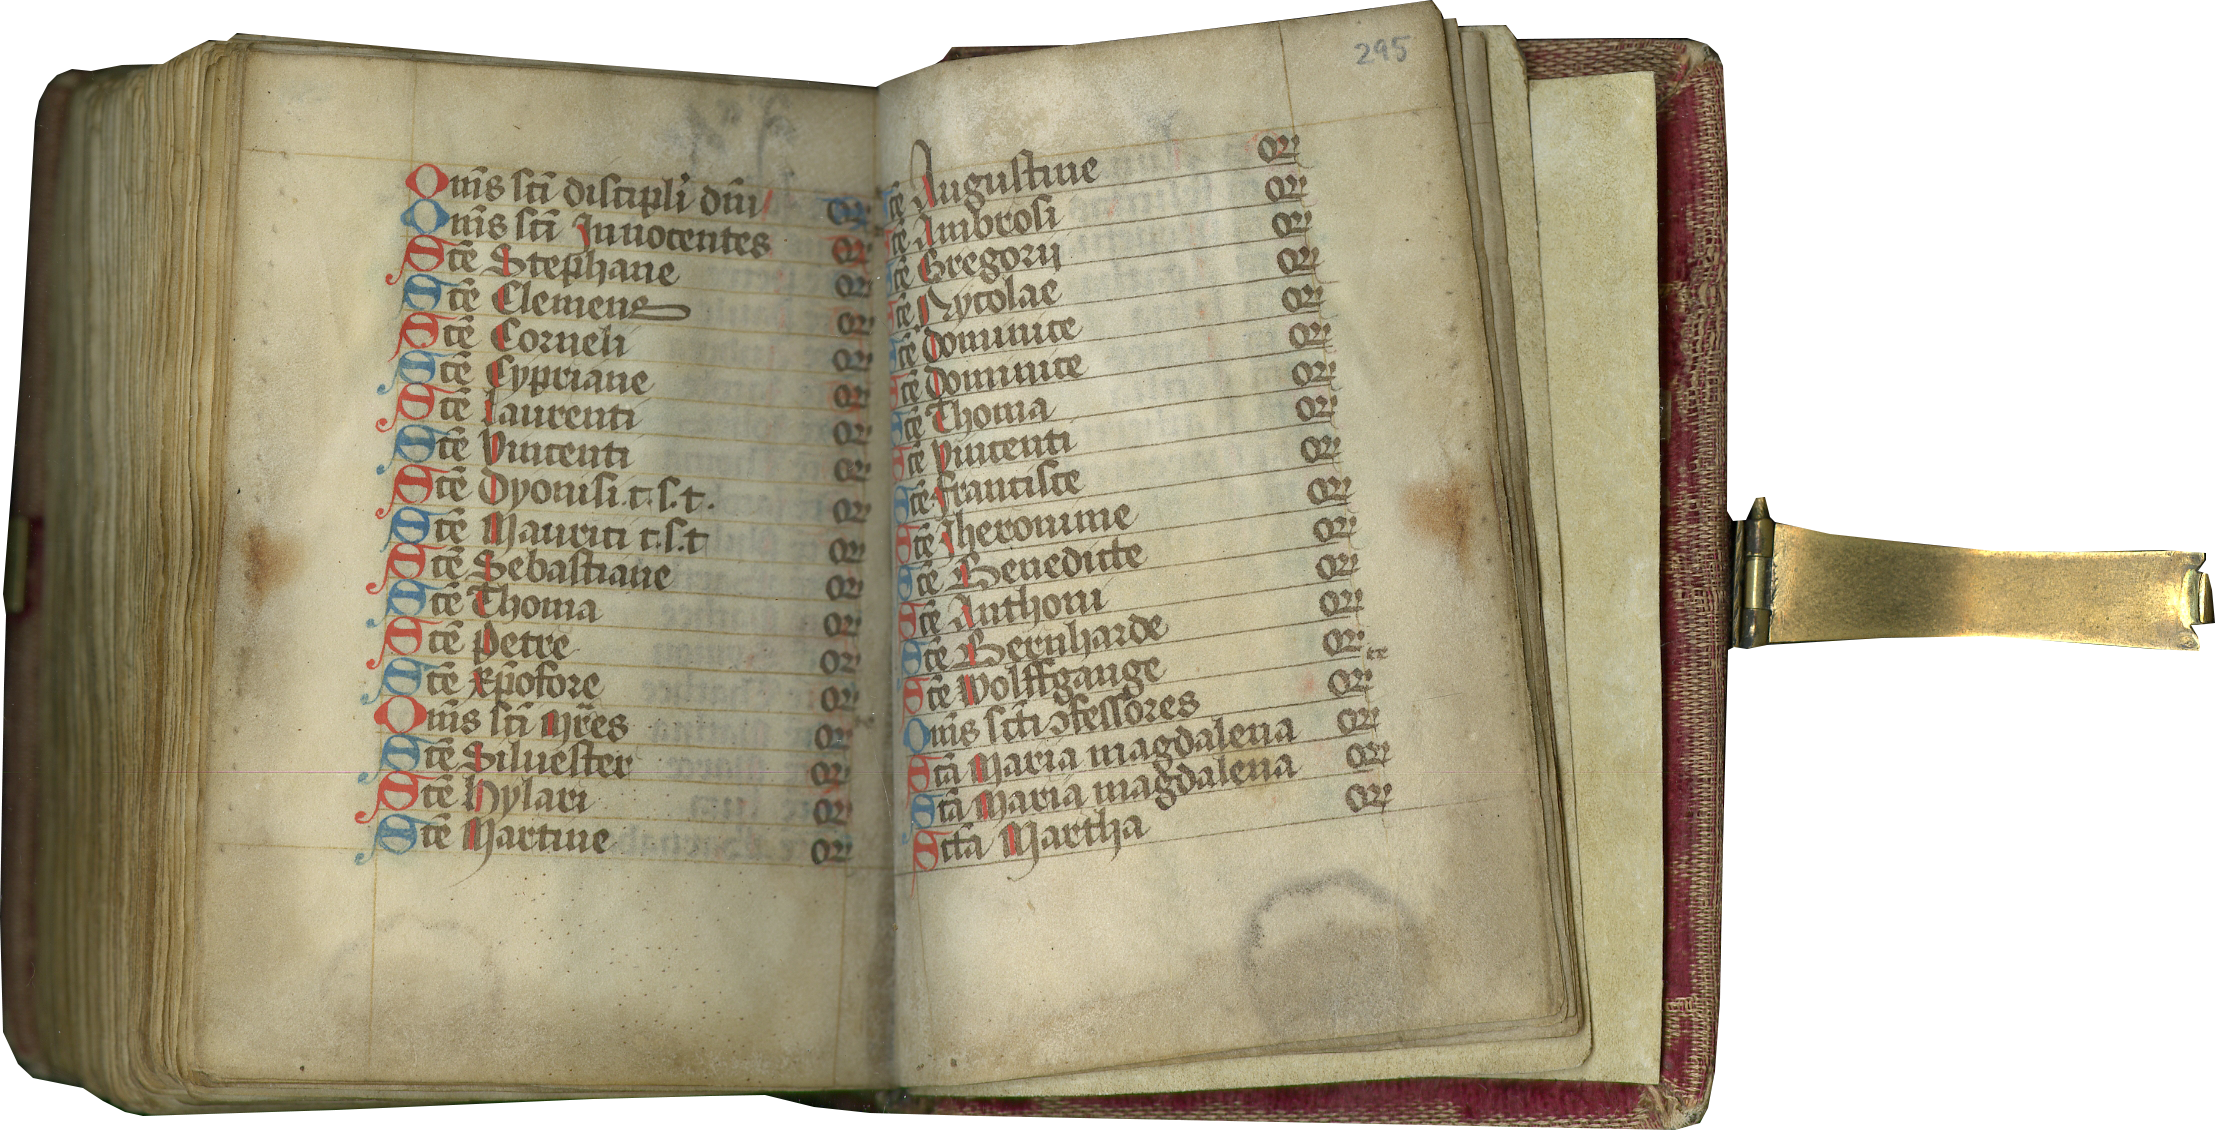 Om̄s sc̄i discipl̄i dn̄i or̄
Om̄s sc̄i Innocentes or
Sc̄e Stephane or
Sc̄e Clemens or
Sc̄e Corneli or
Sc̄e Cypriane or
Sc̄e Laurenti or
Sc̄e Vincenti or
Sc̄e Dyonisi .c.s.t. or
Sc̄e Mauriti c.s.t or
Sc̄e Sebastiane or
Sc̄e Thoma or
Sc̄e Petre or
Sc̄e xp̄ofore or
Om̄s sc̄i Mr̄es or
Sc̄e Siluester or
Sc̄e Hylari or
Sc̄e Martine or
295
Sc̄e Augustine or
Sc̄e Ambrosi or
Sc̄e Gregorij or
Sc̄e Nycolae or
Sc̄e Dominice or
Sc̄e Dominice or
Sc̄e Thoma or
Sc̄e Vincenti or
Sc̄e Francisce or
Sc̄e Iheronime or
Sc̄e Benedicte or
Sc̄e Anthoni or
Sc̄e Bernharde or
Sc̄e Wolffgange or
Om̄s sc̄ti ꝯfessores or
Sc̄ā Maria magdalena or
Sc̄ā Maria magdalena or
Sc̄tā Martha or